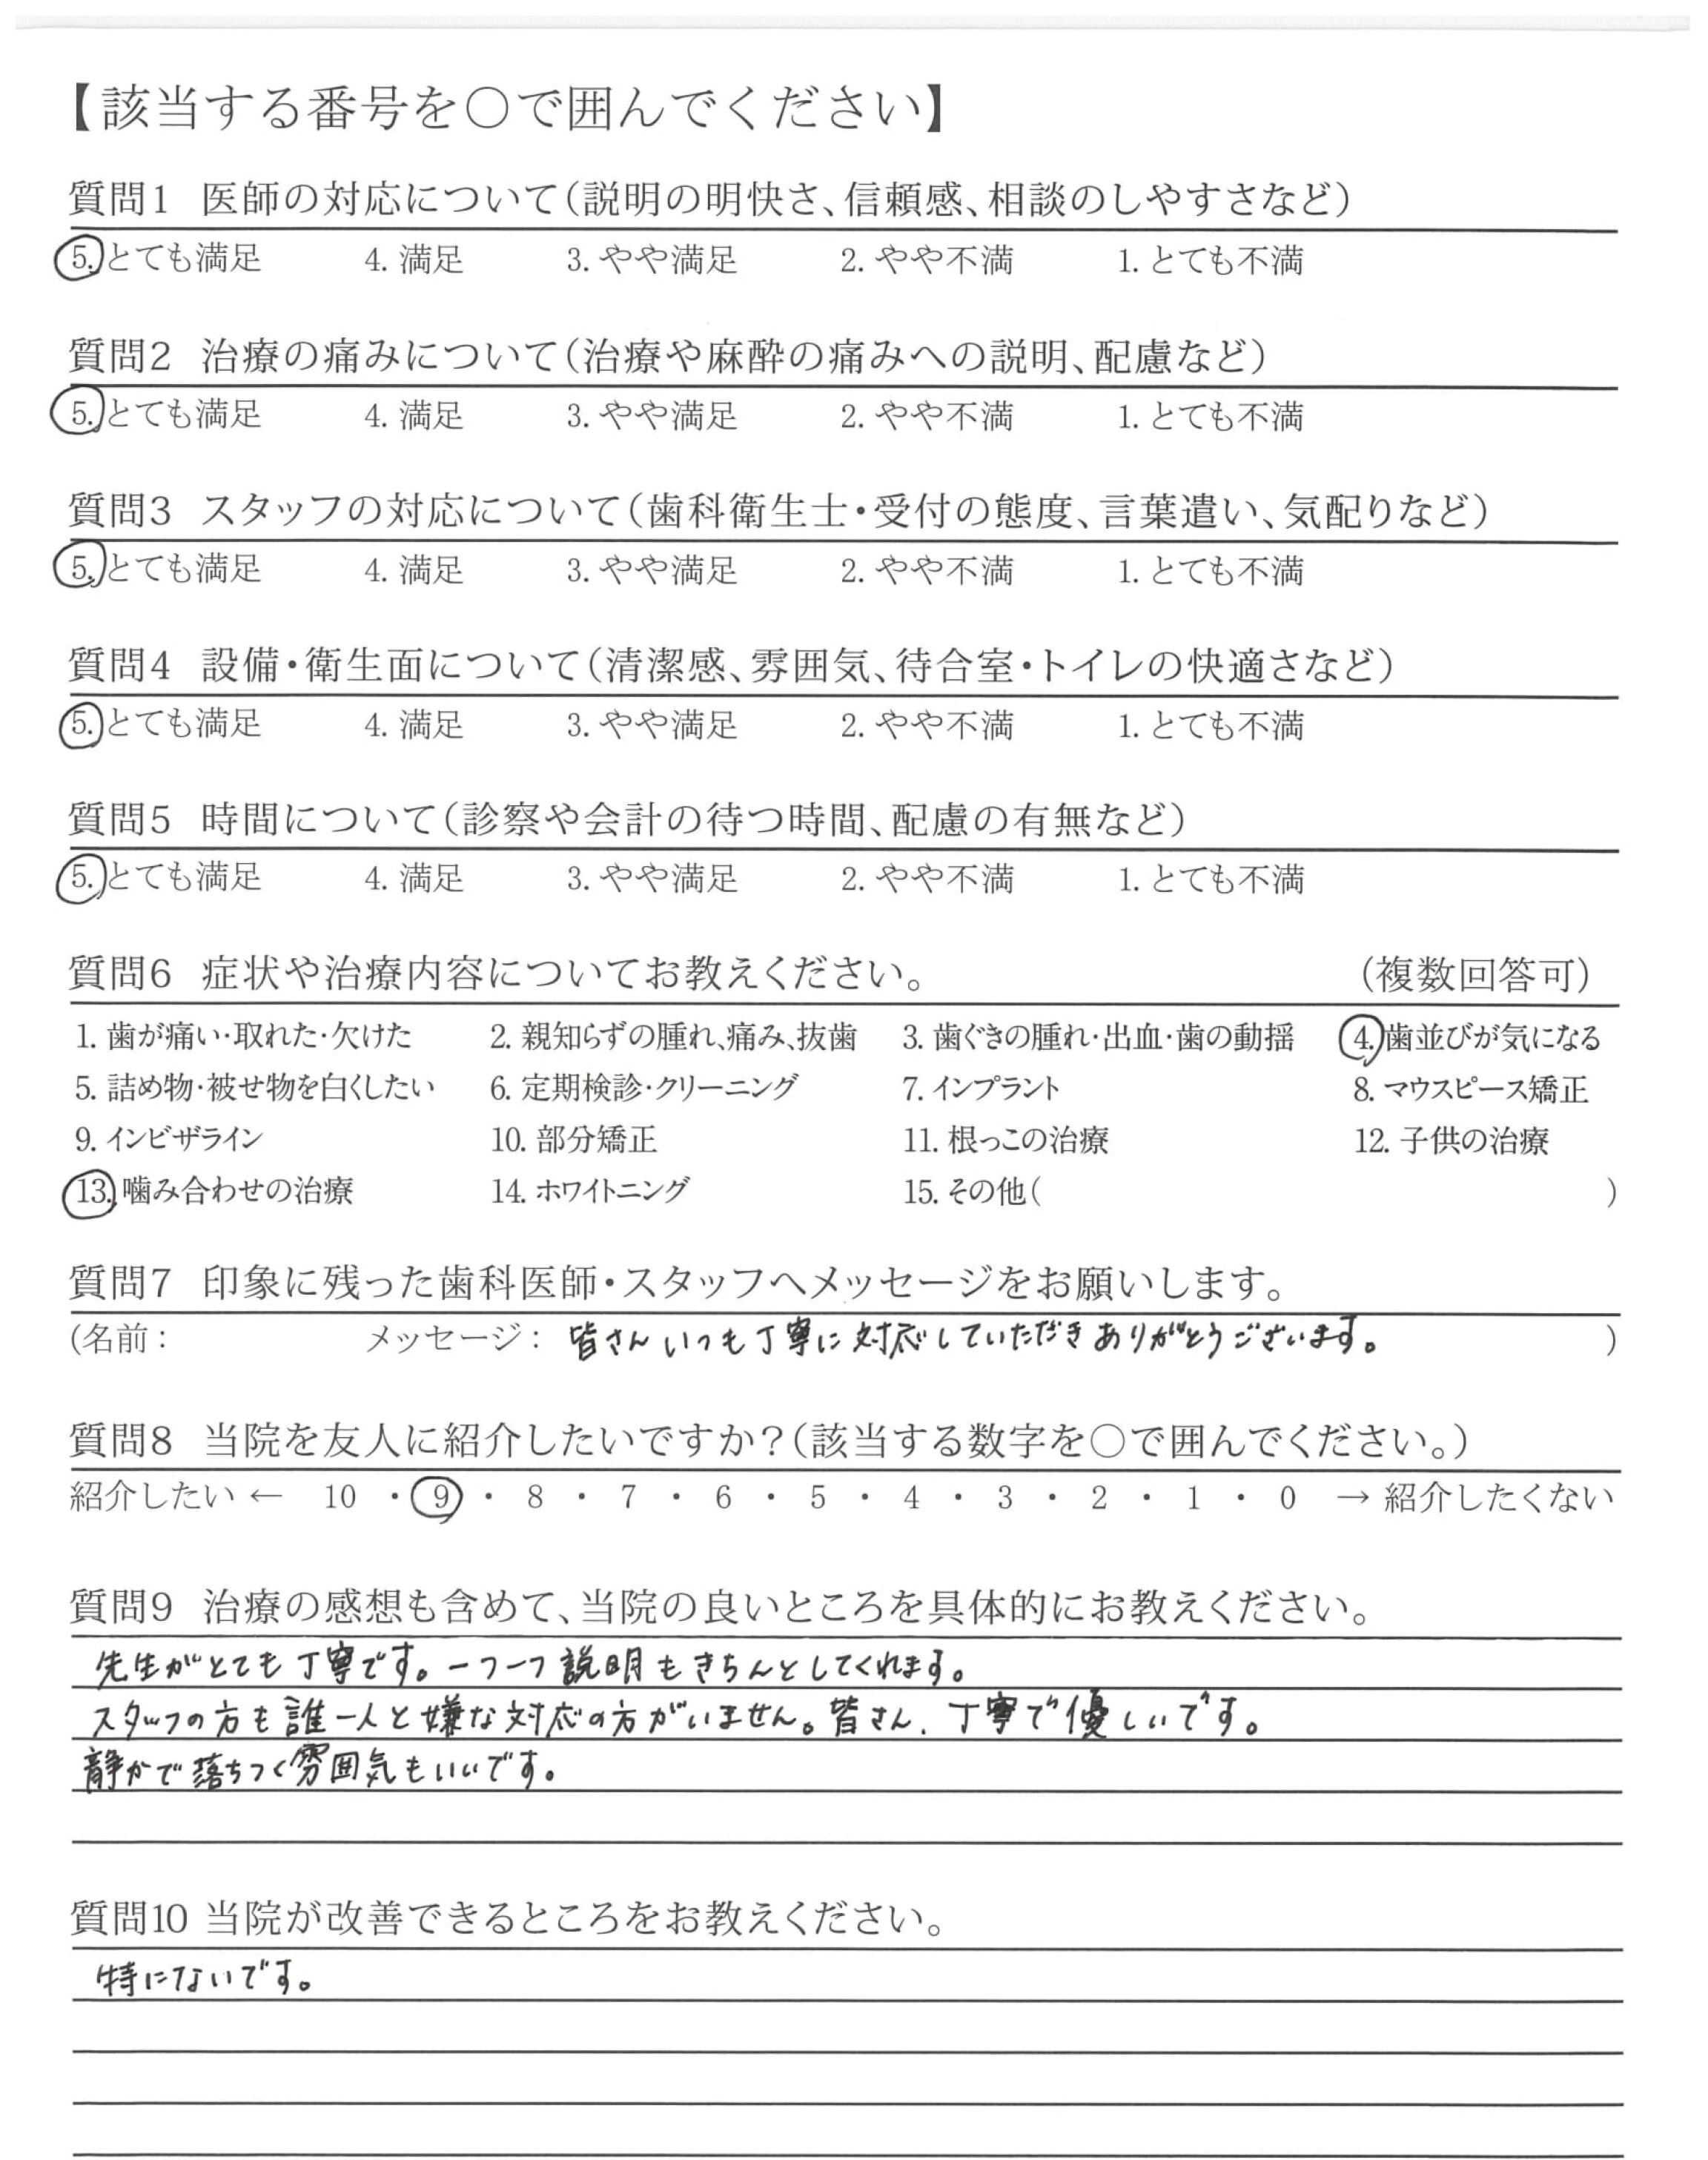 【該当する番号を〇で囲んでください】
質問1 医師の対応について(説明の明快さ、信頼感、相談のしやすさなど)
5. とても満足 4. 満足 3. やや満足 2. やや不満 1. とても不満
質問2 治療の痛みについて(治療や麻酔の痛みへの説明、配慮など)
5. とても満足 4. 満足 3. やや満足 2. やや不満 1. とても不満
質問3 スタッフの対応について(歯科衛生士・受付の態度、言葉遣い、気配りなど)
5. とても満足 4. 満足 3. やや満足 2. やや不満 1. とても不満
質問4 設備・衛生面について(清潔感、雰囲気、待合室・トイレの快適さなど)
5. とても満足 4. 満足 3. やや満足 2. やや不満 1. とても不満
質問5 時間について(診察や会計の待つ時間、配慮の有無など)
5. とても満足 4. 満足 3. やや満足 2. やや不満 1. とても不満
質問6 症状や治療内容についてお教えください。 (複数回答可)
1. 歯が痛い・取れた・欠けた 2. 親知らずの腫れ、痛み、抜歯 3. 歯ぐきの腫れ・出血・歯の動揺 4. 歯並びが気になる
5. 詰め物・被せ物を白くしたい 6. 定期検診・クリーニング 7. インプラント 8. マウスピース矯正
9. インビザライン 10. 部分矯正 11. 根っこの治療 12. 子供の治療
13. 噛み合わせの治療 14. ホワイトニング 15. その他( )
質問7 印象に残った歯科医師・スタッフへメッセージをお願いします。
(名前: メッセージ: 皆さんいつも丁寧に対応していただきありがとうございます。 )
質問8 当院を友人に紹介したいですか?(該当する数字を〇で囲んでください。)
紹介したい ← 10 ・ 9 ・ 8 ・ 7 ・ 6 ・ 5 ・ 4 ・ 3 ・ 2 ・ 1 ・ 0 → 紹介したくない
質問9 治療の感想も含めて、当院の良いところを具体的にお教えください。
先生がとても丁寧です。一つ一つ説明もきちんとしてくれます。
スタッフの方も誰一人と嫌な対応の方がいません。皆さん、丁寧で優しいです。
静かで落ちつく雰囲気もいいです。
質問10 当院が改善できるところをお教えください。
特にないです。